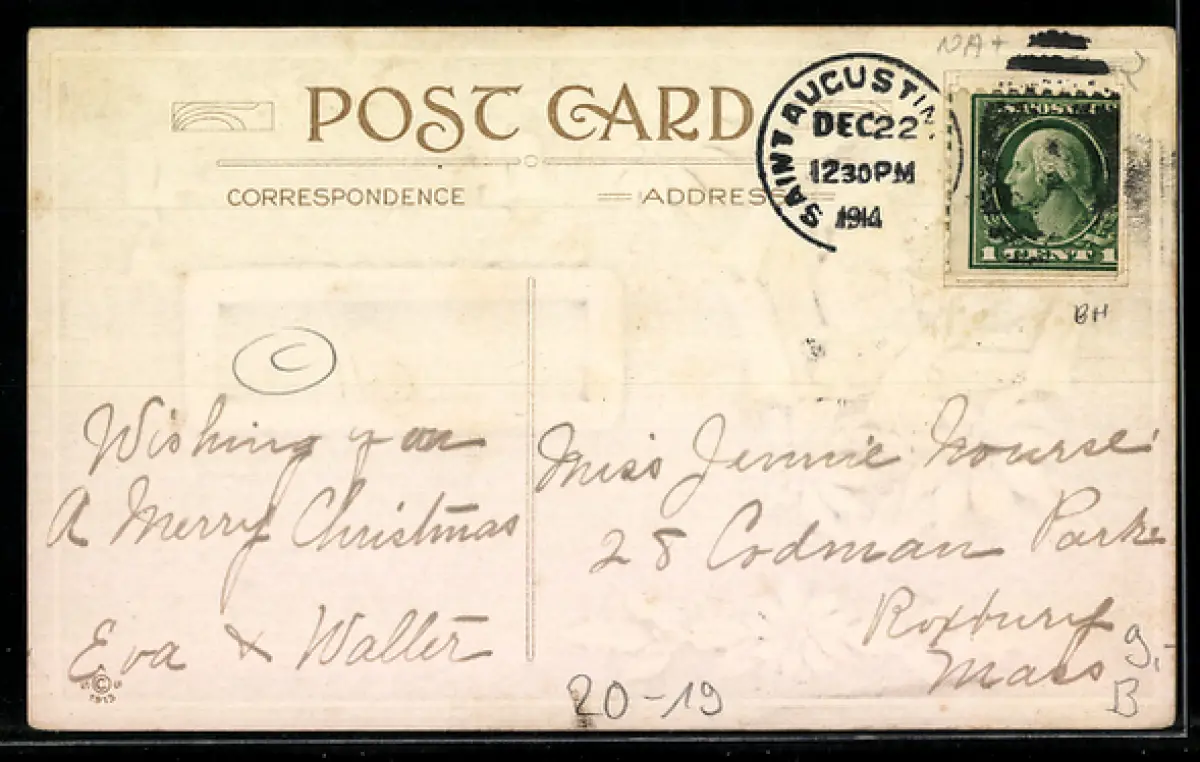 NA+
POST CARD
SAINT AUGUSTIN
DEC 22
12 30 PM
1914
U.S. POST
1 CENT 1
CORRESPONDENCE
ADDRESS
BH
C
Wishing you
A Merry Christmas
Eva & Walter
Miss Jennie Nourse
28 Codman Park
Roxbury
Mass
9,-
B
20-19
©
1913